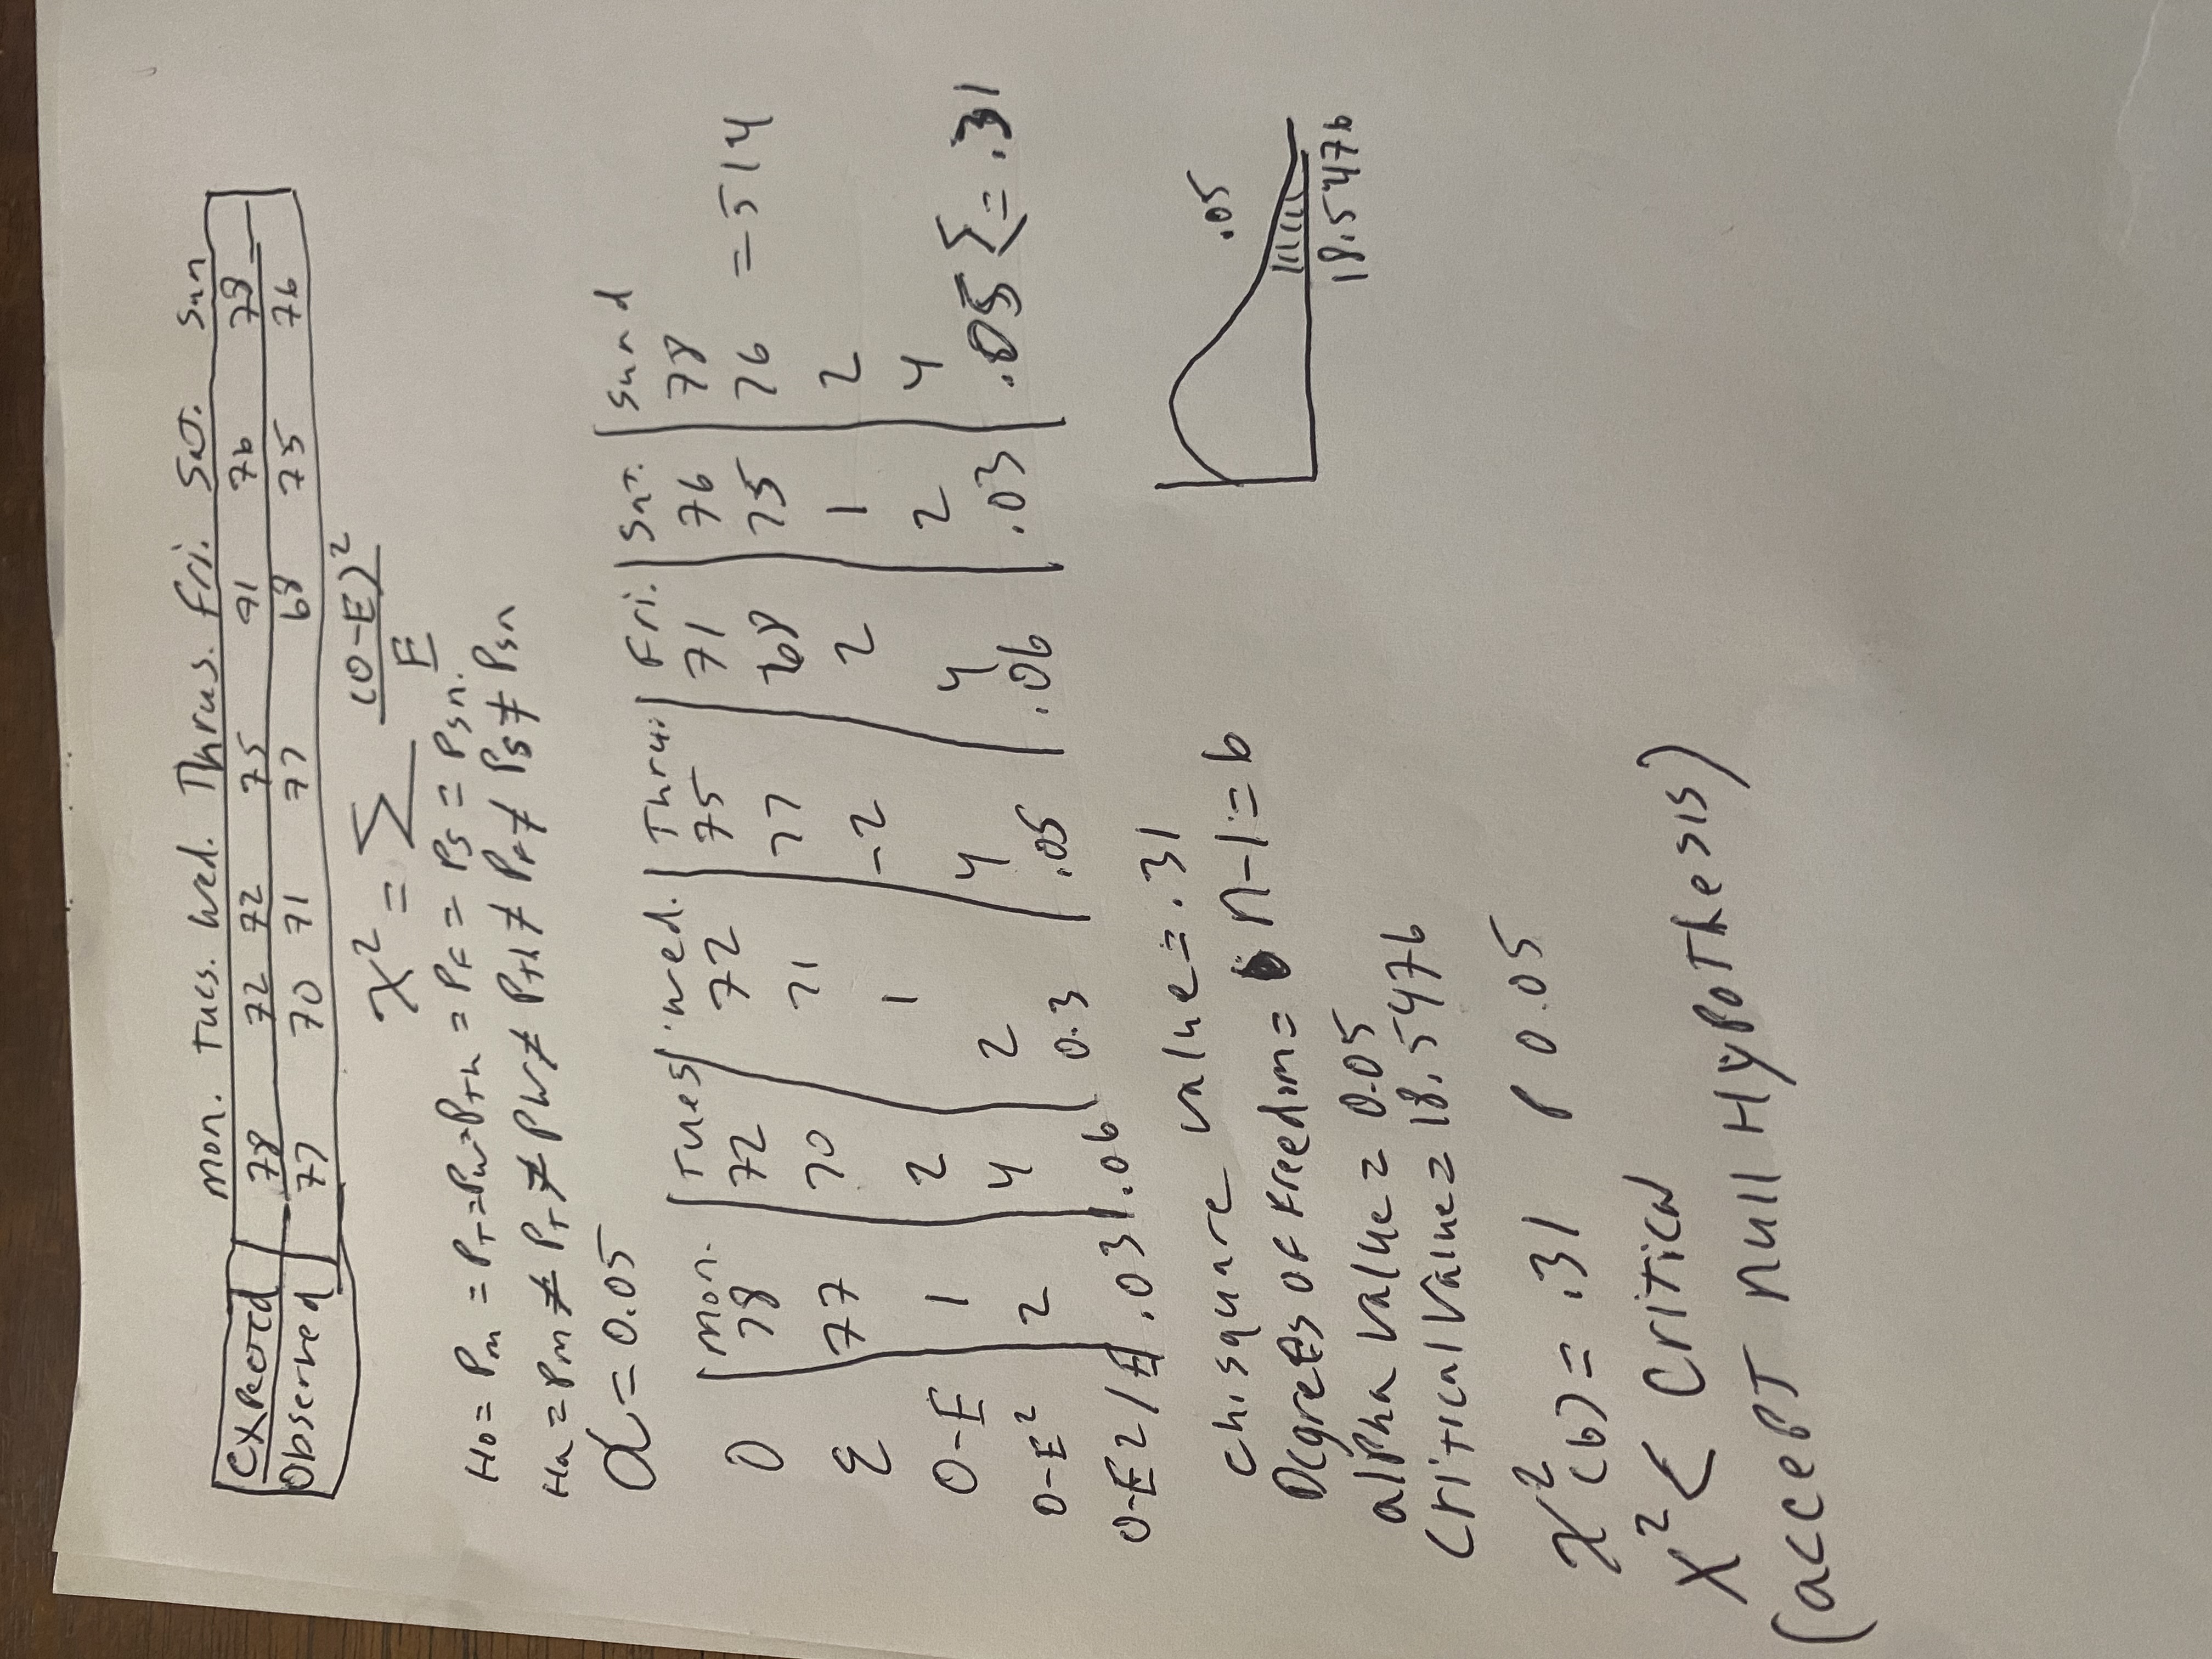 mon. Tues. Wed. Thrus. Fri. Sat. Sun
Expected 78 72 72 75 71 76 78
Observed 77 70 71 77 68 75 76
χ² = Σ (O-E)²/E
Ho = Pm = PT = PW = PTh = PF = PS = PSn.
Ha = Pm ≠ PT ≠ PW ≠ PTh ≠ PF ≠ PS ≠ PSn
α = 0.05
mon. Tues Wed. Thru. Fri. Sat. Sund
O 78 72 72 75 71 76 78
E 77 70 71 77 68 75 76 = 514
O-E 1 2 1 -2 2 1 2
O-E² 2 4 2 4 4 2 4
O-E2/E .03 .06 0.3 .05 .06 .03 .05 Σ = .31
chisquare value = .31
Degrees of Freedom = n-1 = 6
alpha value = 0.05
Critical Value = 18.5476
.05
18.5476
χ²(6) = .31 P 0.05
X² < Critical
(accept null Hypothesis)